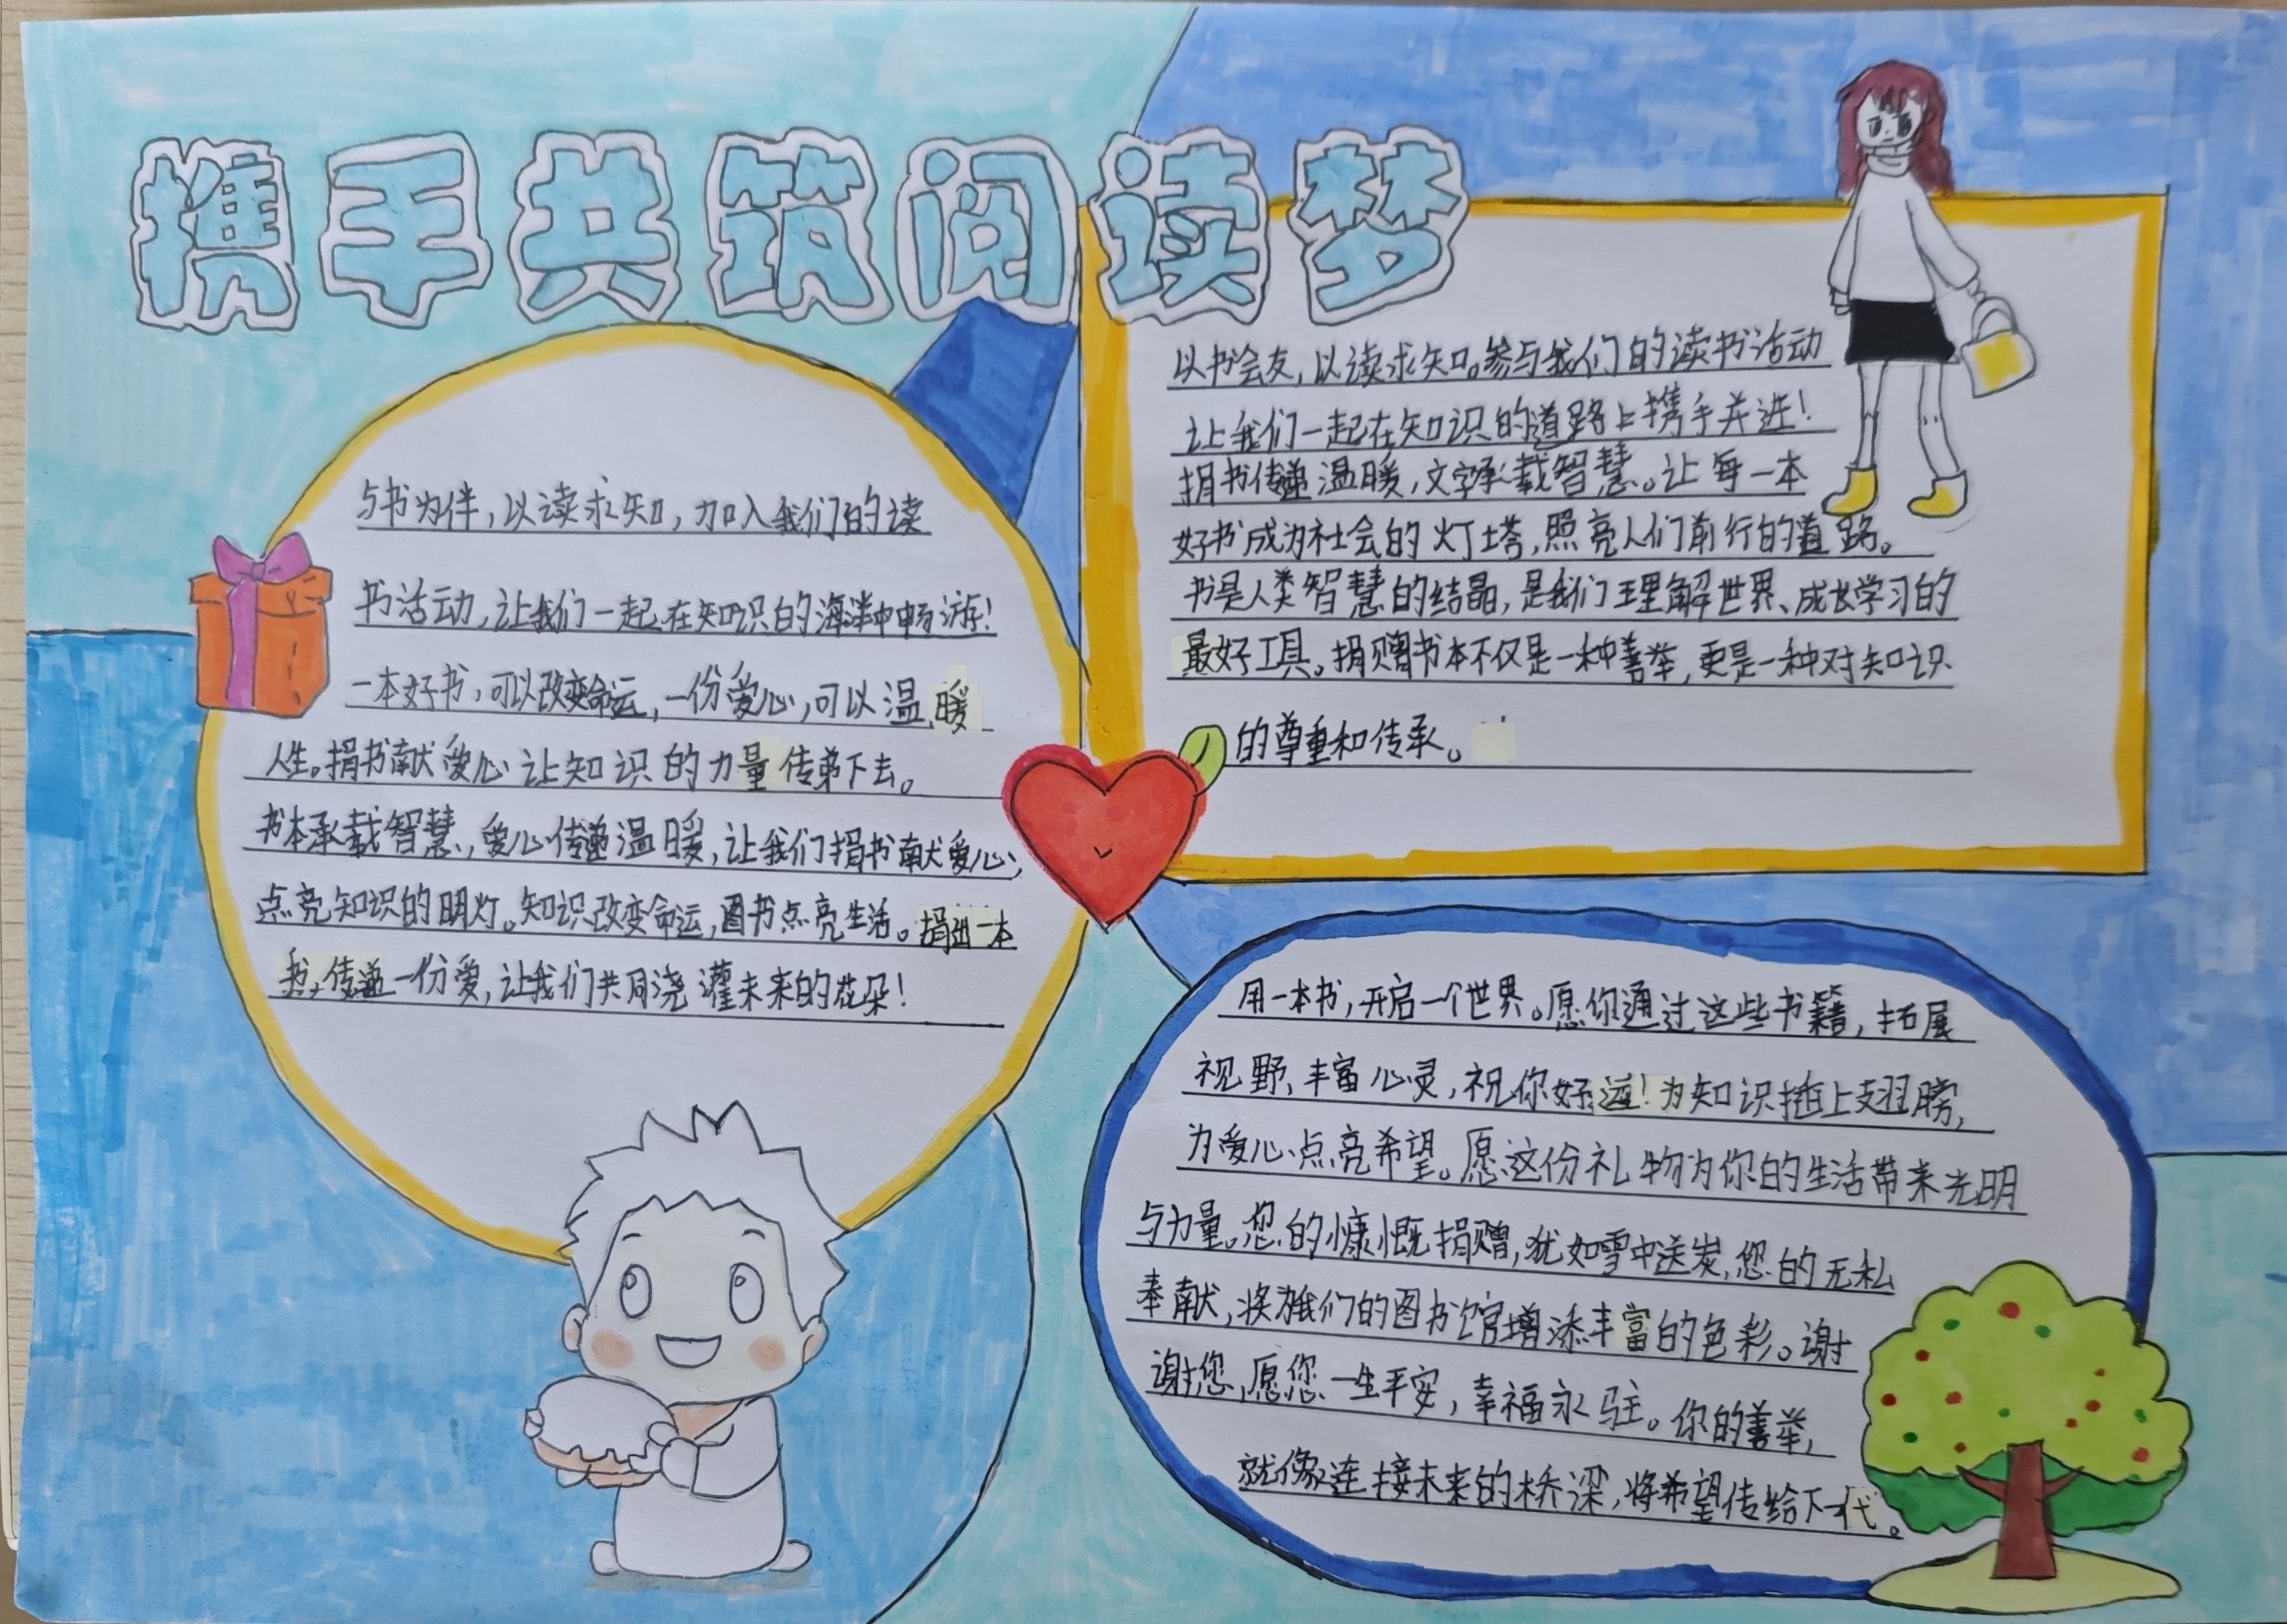 携手共筑阅读梦
与书为伴，以读求知，加入我们的读
书活动，让我们一起在知识的海洋中畅游！
一本好书，可以改变命运，一份爱心，可以温暖
人生。捐书献爱心让知识的力量传递下去。
书本承载智慧，爱心传递温暖，让我们捐书献爱心，
点亮知识的明灯。知识改变命运，图书点亮生活。捐出一本
书，传递一份爱，让我们共同浇灌未来的花朵！
以书会友，以读求知。参与我们的读书活动
让我们一起在知识的道路上携手并进！
捐书传递温暖，文字承载智慧。让每一本
好书成为社会的灯塔，照亮人们前行的道路。
书是人类智慧的结晶，是我们理解世界、成长学习的
最好工具。捐赠书本不仅是一种善举，更是一种对知识
的尊重和传承。
用一本书，开启一个世界。愿你通过这些书籍，拓展
视野，丰富心灵，祝你好运！为知识插上翅膀，
为爱心点亮希望。愿这份礼物为你的生活带来光明
与力量。您的慷慨捐赠，犹如雪中送炭，您的无私
奉献，将为我们的图书馆增添丰富的色彩。谢
谢您，愿您一生平安，幸福永驻。你的善举，
就像连接未来的桥梁，将希望传给下一代。